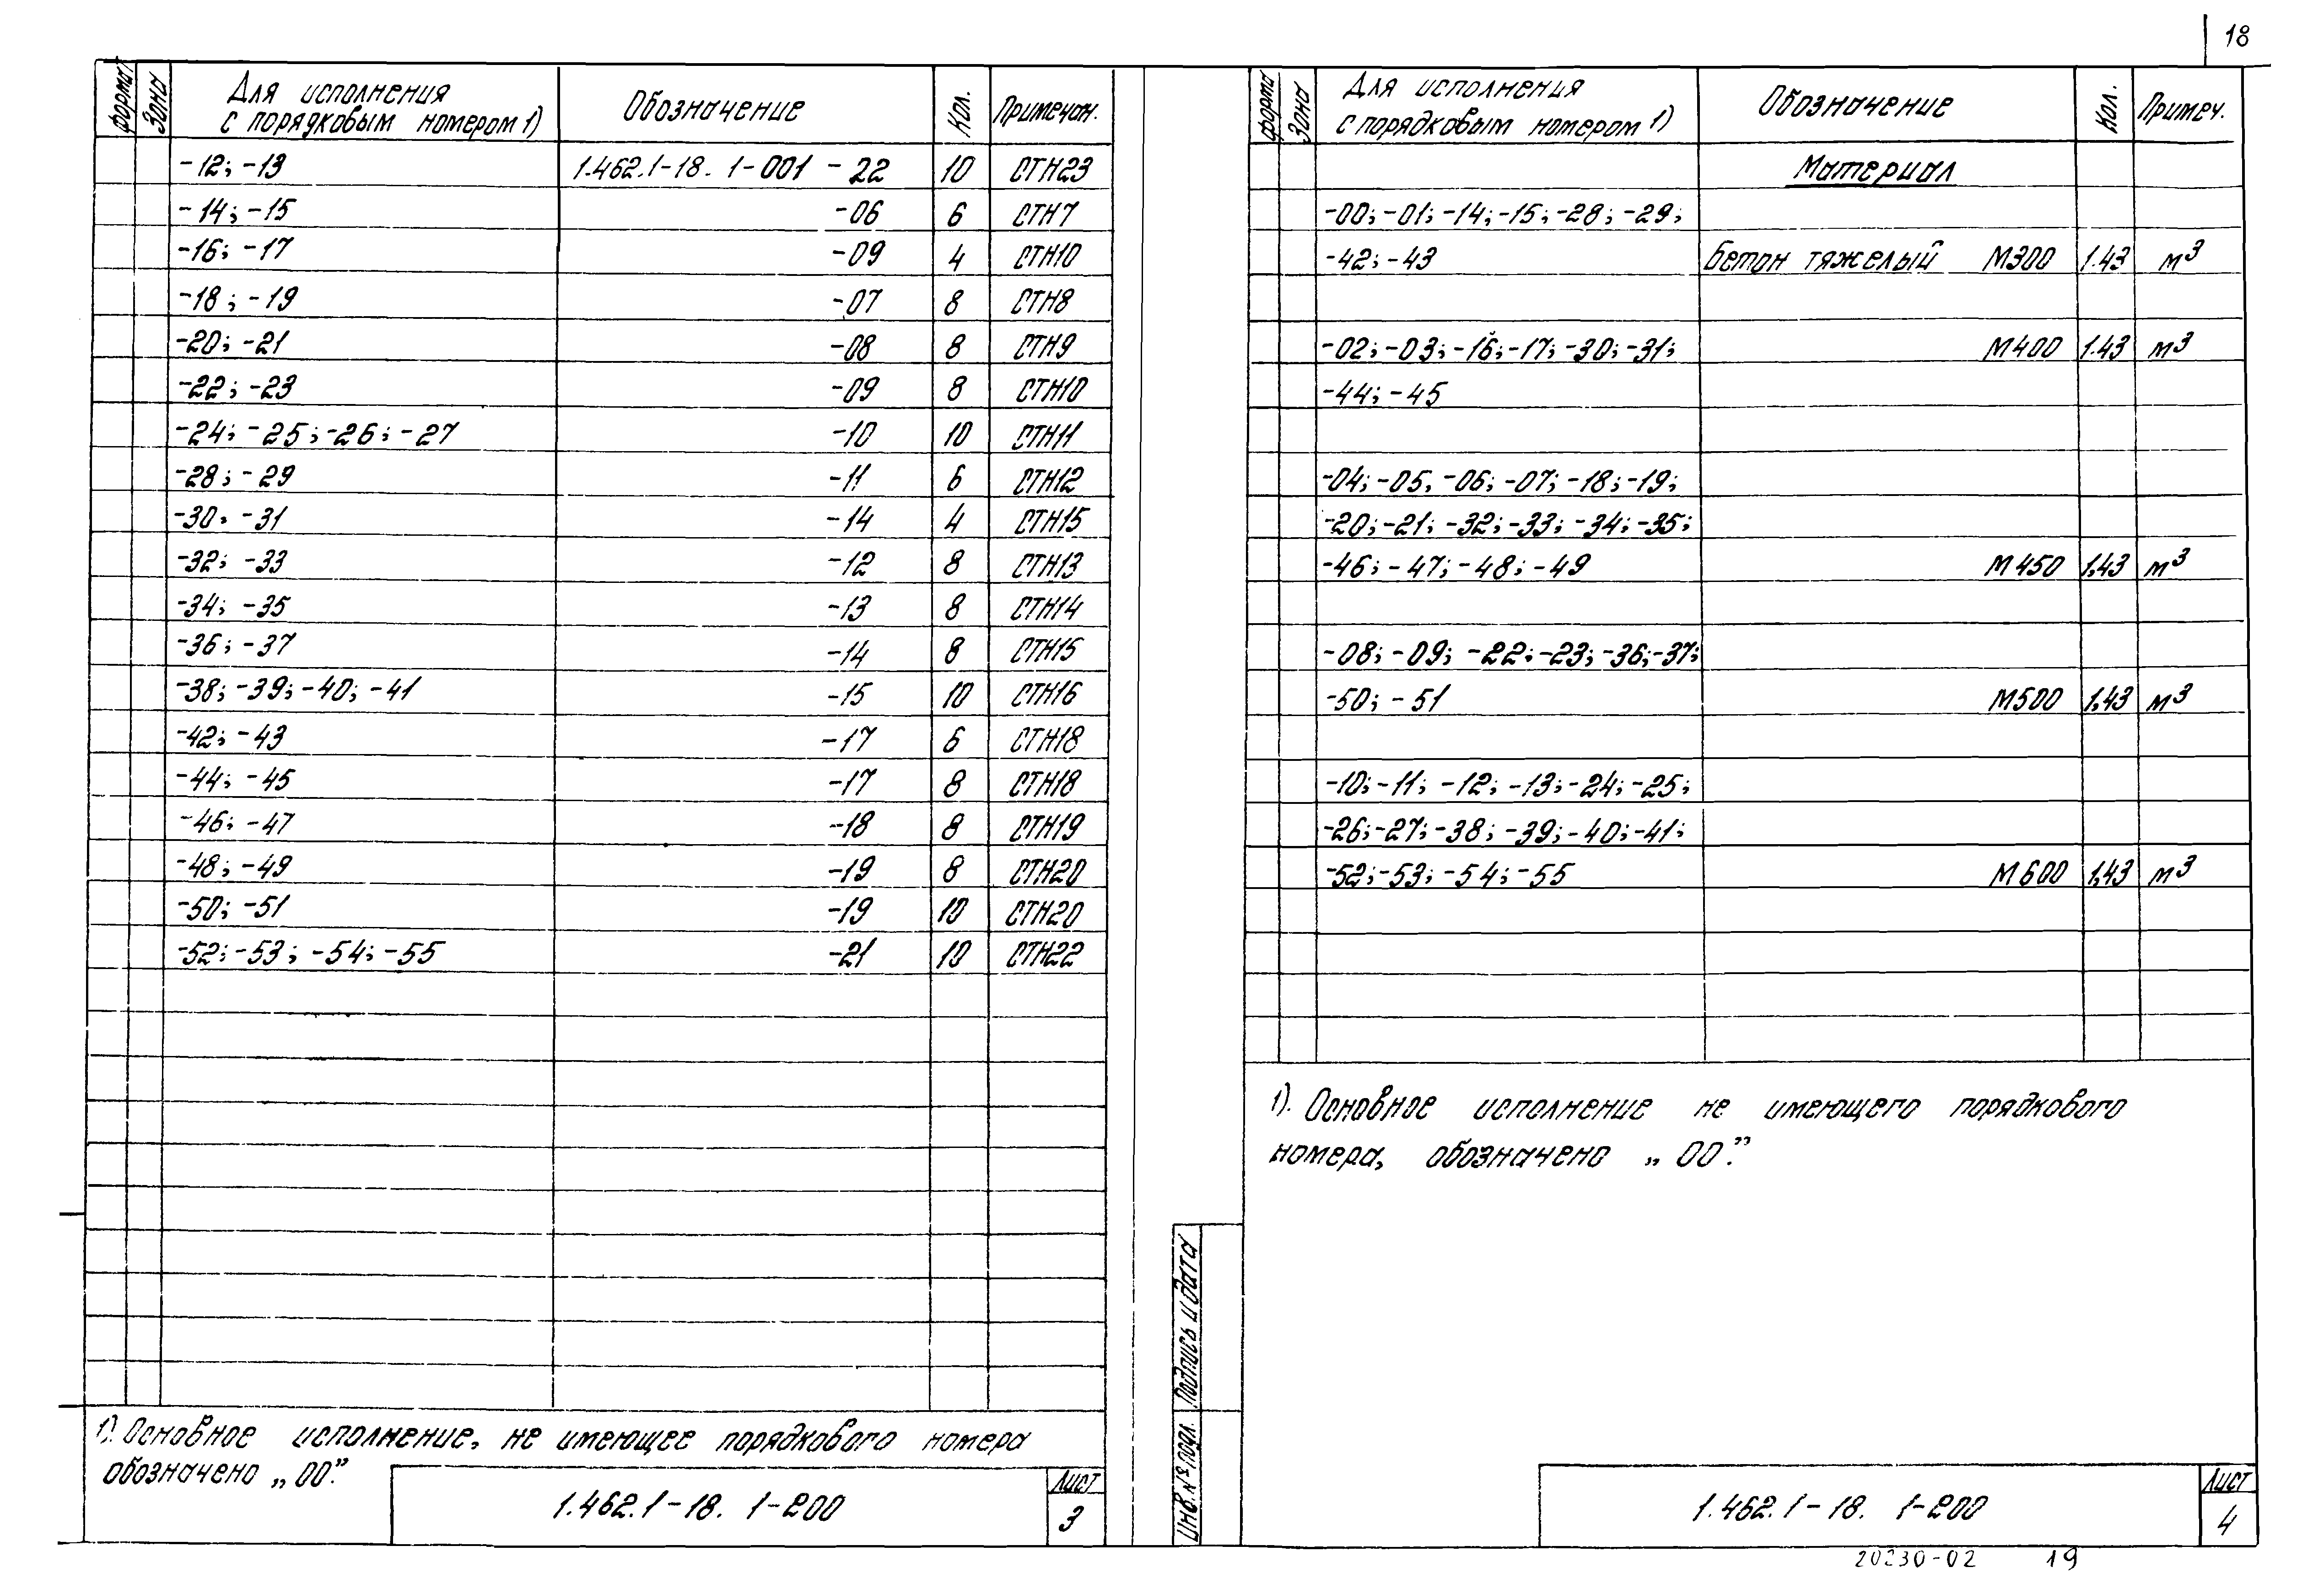 18
форма Зона Для исполнения с порядковым номером 1) Обозначение Кол. Примечан.
-12; -13 1.462.1-18. 1-001 -22 10 СТН23
-14; -15 -06 6 СТН7
-16; -17 -09 4 СТН10
-18; -19 -07 8 СТН8
-20; -21 -08 8 СТН9
-22; -23 -09 8 СТН10
-24; -25; -26; -27 -10 10 СТН11
-28; -29 -11 6 СТН12
-30. -31 -14 4 СТН15
-32; -33 -12 8 СТН13
-34; -35 -13 8 СТН14
-36; -37 -14 8 СТН15
-38; -39; -40; -41 -15 10 СТН16
-42; -43 -17 6 СТН18
-44; -45 -17 8 СТН18
-46; -47 -18 8 СТН19
-48; -49 -19 8 СТН20
-50; -51 -19 10 СТН20
-52; -53; -54; -55 -21 10 СТН22
1). Основное исполнение, не имеющее порядкового номера
обозначено „00”.
1.462.1-18. 1-200
Лист
3
форма Зона Для исполнения с порядковым номером 1) Обозначение Кол. Примеч.
Материал
-00; -01; -14; -15; -28; -29;
-42; -43 Бетон тяжелый М300 1.43 м³
-02; -03; -16; -17; -30; -31; М400 1.43 м³
-44; -45
-04; -05, -06; -07; -18; -19;
-20; -21; -32; -33; -34; -35;
-46; -47; -48; -49 М450 1,43 м³
-08; -09; -22; -23; -36; -37;
-50; -51 М500 1,43 м³
-10; -11; -12; -13; -24; -25;
-26; -27; -38; -39; -40; -41;
-52; -53; -54; -55 М600 1,43 м³
1). Основное исполнение не имеющего порядкового
номера, обозначено „00”.
Инв. № подл. Подпись и дата
1.462.1-18. 1-200
Лист
4
20230-02 19